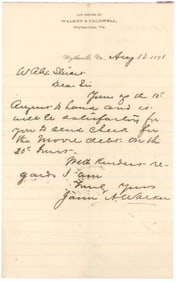 LAW OFFICES OF
WALKER & CALDWELL,
Wytheville, Va.
Wytheville, Va., Aug 13 1891
W Alex Stuart
Dear Sir
Yours of the 12
August to hand and it
will be satisfactory for
you to send check for
the Moore debt on the
25 Inst.
With kindest re-
gards I am
Truly Yours
James A Walker